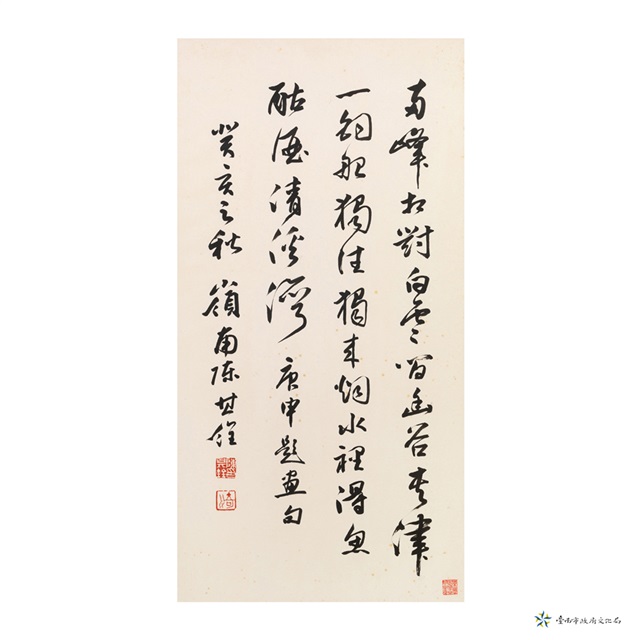 兩峰相對白雲間幽谷夾津
一釣船獨往獨來烟水裡得魚
酤酒清溪灣 庚申題畫句
癸亥之秋 嶺南陳其銓
臺南市政府文化局